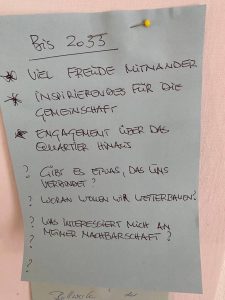 BIS 2033
* VIEL FREUDE MITNANDER
* INSPIRIERENDES FÜR DIE
GEMEINSCHAFT
* ENGAGEMENT ÜBER DAS
QUARTIER HINAUS
? GIBT ES ETWAS, DAS UNS
VERBINDET?
? WORAN WOLLEN WIR WEITERBAUEN?
? WAS INTERESSIERT MICH AN
? MEINER NACHBARSCHAFT?
?
?